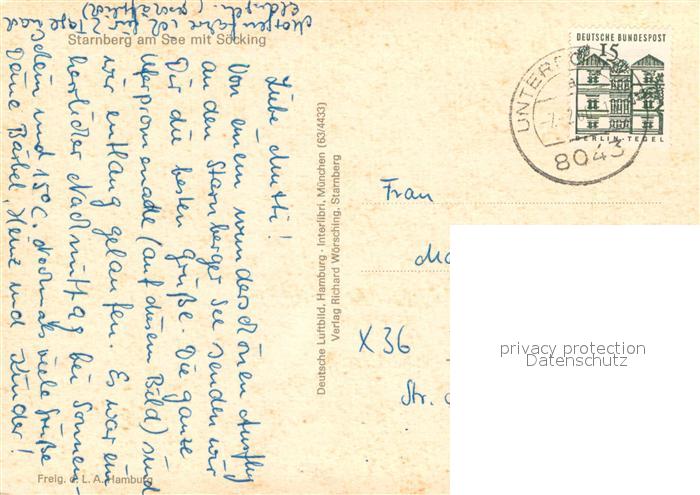 Starnberg am See mit Söcking
Morgen fahre ich für 2 Tage nach
(geschäftlich)
Liebe Mutti!
Von einem wunderschönen Ausflug
an den Starnberger See senden wir
Dir die besten Grüße. Die ganze
Uferpromenade (auf diesem Bild) sind
wir entlang gelaufen. Es war ein
herrlicher Nachmittag bei Sonnen-
schein und 15°C. Nochmals viele Grüße
Deine Bärbel, Heinz und Kinder!
Freig. d. L. A. Hamburg
Deutsche Luftbild, Hamburg · Interlibri, München (63/4433)
Verlag Richard Wörsching, Starnberg
DEUTSCHE BUNDESPOST
15
BERLIN-TEGEL
8043
Frau
X 36
Str.
privacy protection
Datenschutz